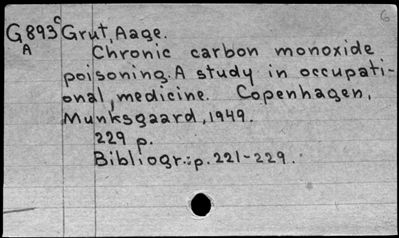 6
G893c Grut, Aage.
A
Chronic carbon monoxide
poisoning. A study in occupati-
onal, medicine. Copenhagen,
Munksgaard, 1949.
229 p.
Bibliogr.: p. 221-229.